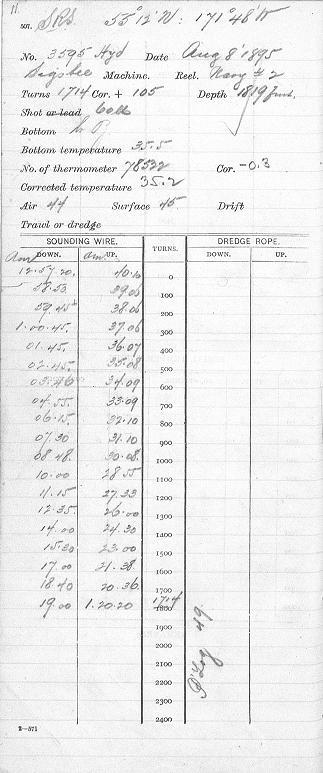 11.
Lat. SRS. 53° 12' N: 171° 48' W
No. 3595 Hyd Date Aug 8' 1895
Sigsbee Machine. Reel. Navy # 2
Turns 1714 Cor. + 105 Depth 1819 fms.
Shot or lead 60lb
Bottom
Bottom temperature 35.5
No. of thermometer 78522 Cor. -0.3
Corrected temperature 35.2
Air 44 Surface 45 Drift
Trawl or dredge
SOUNDING WIRE. TURNS. DREDGE ROPE.
Am DOWN. Am UP. DOWN. UP.
12.57.20. 40.10 0
58.53 39.06 100
59.45 38.06 200
1.00.45. 37.06 300
01.45. 36.07 400
02.45. 35.08 500
03.46 34.09 600
04.55. 33.09 700
06.15. 32.10 800
07.30 31.10 900
08.48. 30.08. 1000
10.00 28.55 1100
11.15 27.33 1200
12.35. 26.00 1300
14.00 24.30 1400
15.30 23.00 1500
17.00 21.38. 1600
18.40 20.36. 1700
19.00 1.20.20 1714 1800
1900
2000
2100
2200
2300
2400
P'Log 49.
2—571